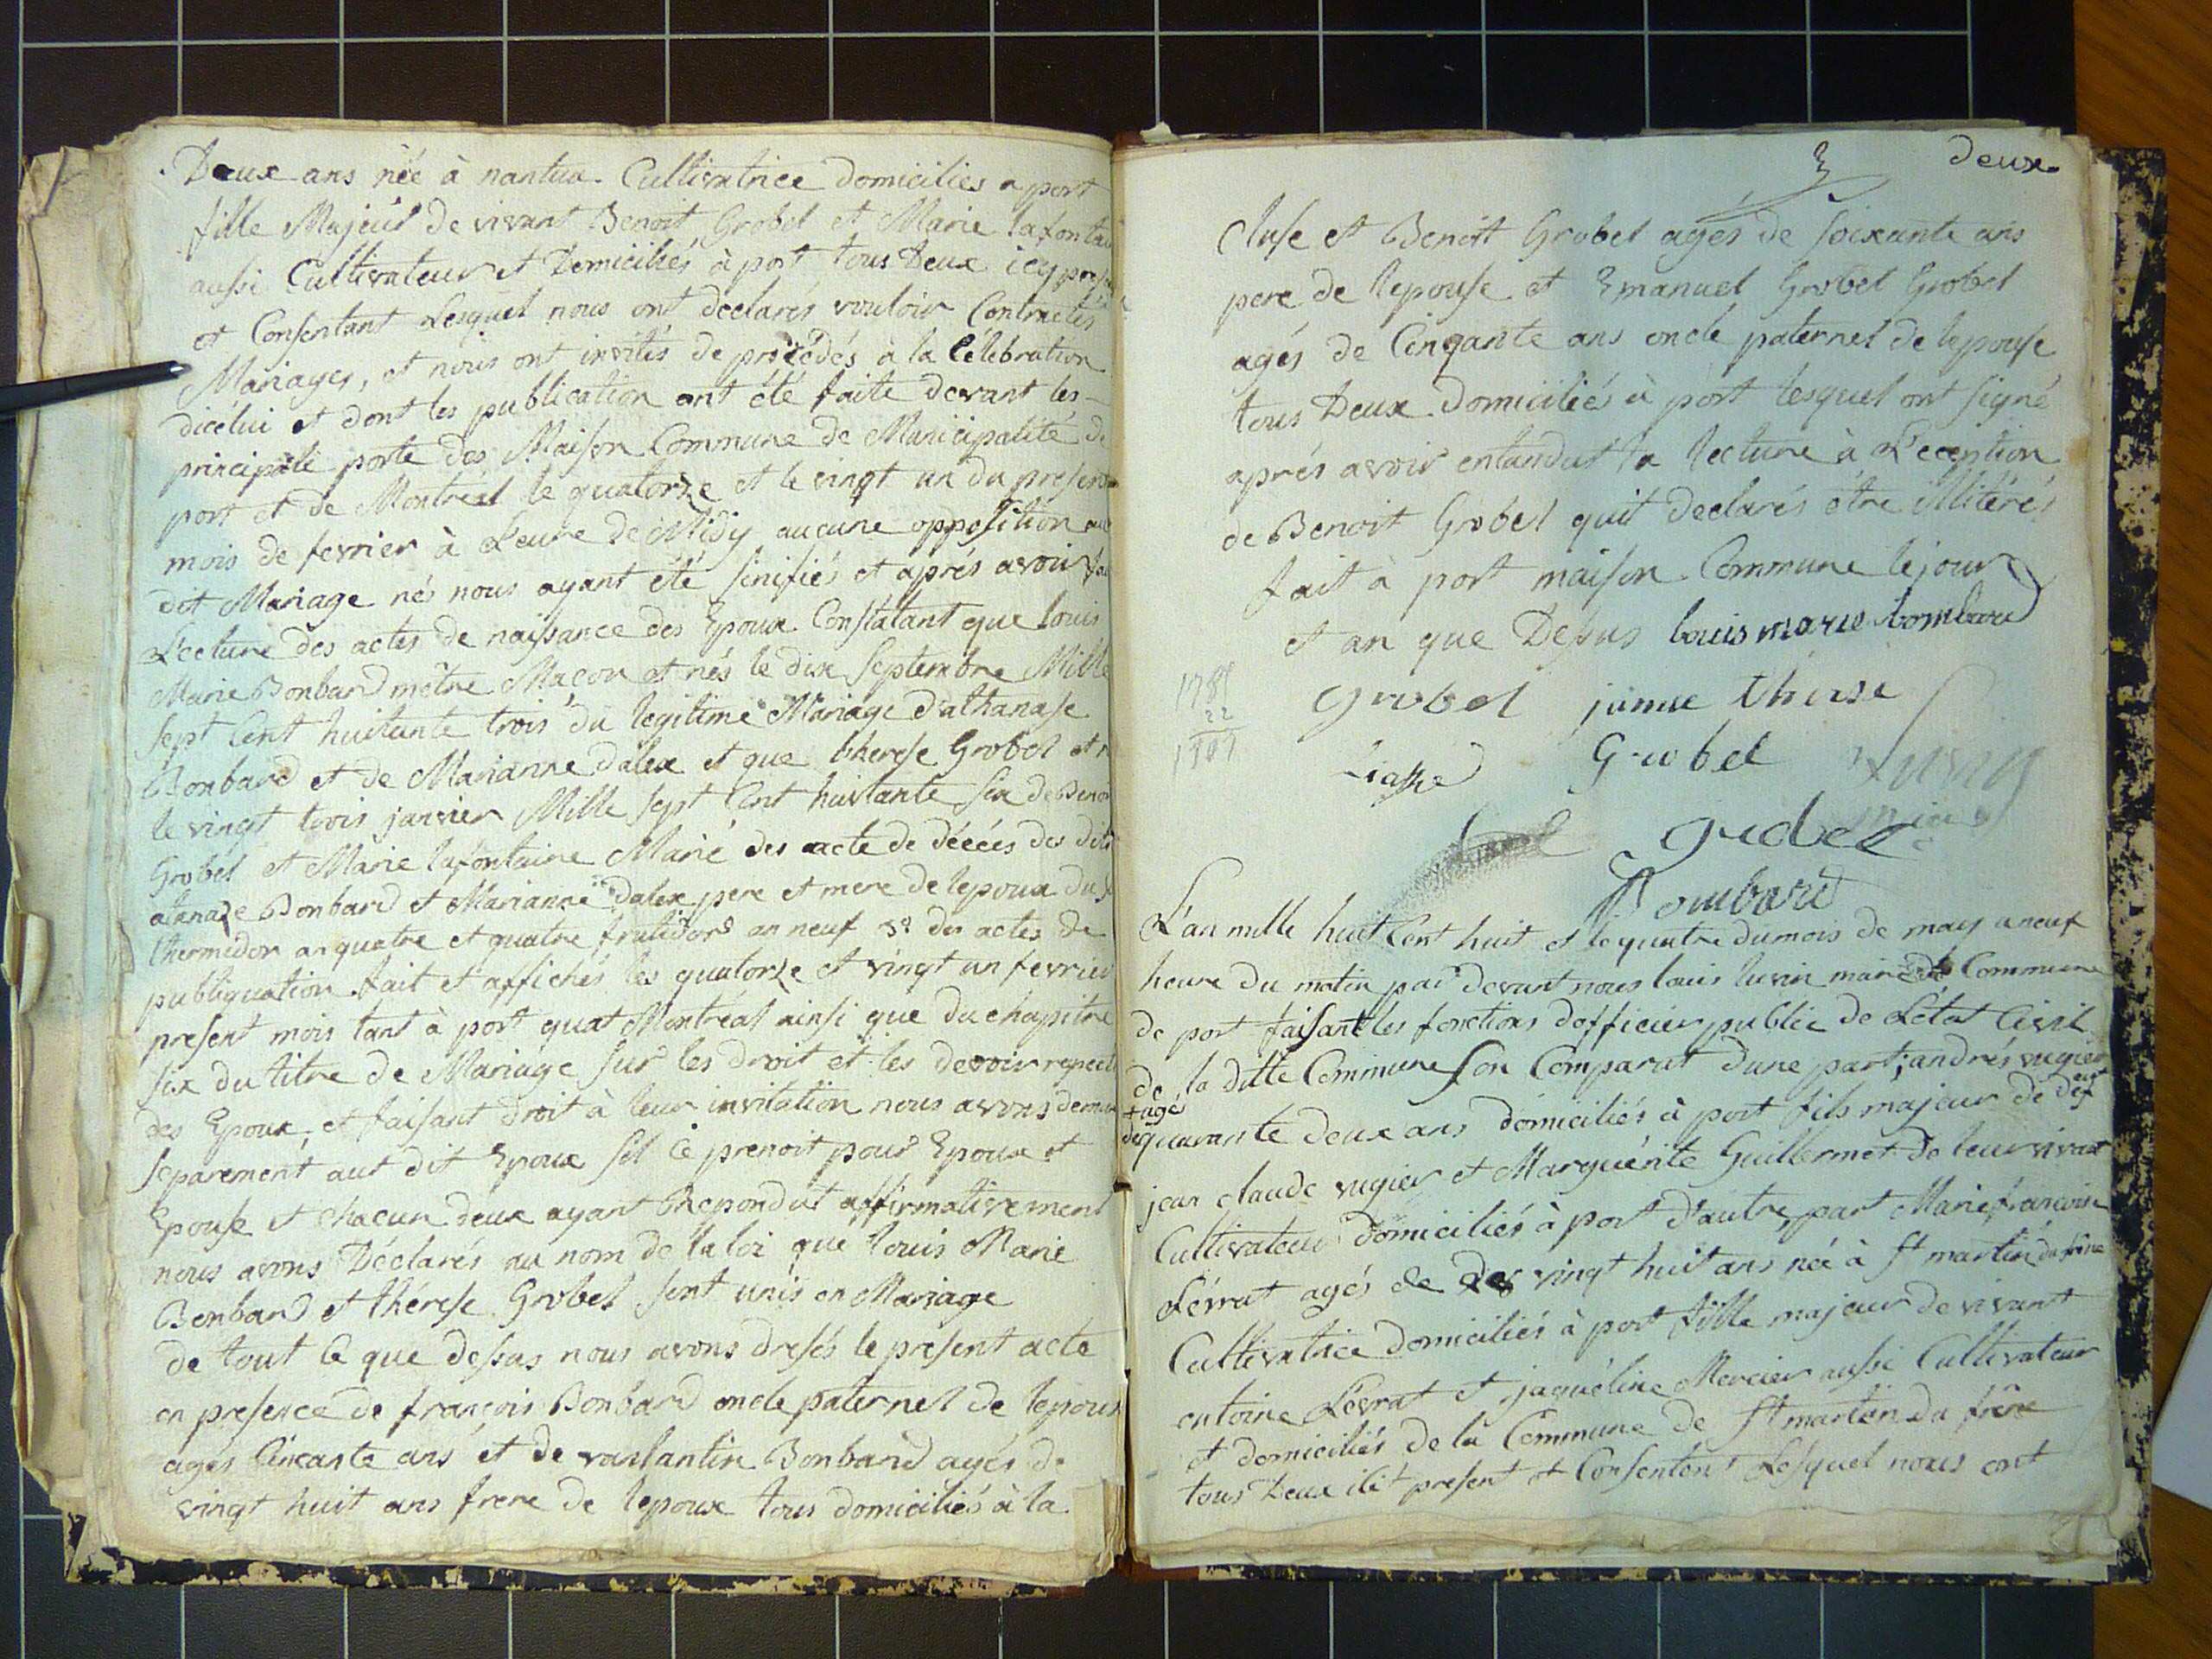 Deux ans née à nantua. Cultivatrice domiciliés a port
fille Majeur de vivant Benoit Grobel et Marie lafontai
aussi Cultivateur et Domiciliés à port tous Deux icy prese
et Consentant Lesquel nous ont declarés vouloir Contractés
Mariages, et nous ont invités de procédés à la Célébration
dicélui et dont les publication ont été faite devant les
principale porte des Maison Commune de Municipalité de
port et de Montréal le quatorze et le vingt un du present
mois de fevrier à Leure de Midy aucune opposition au
dit Mariage nés nous ayant été sinifiés et aprés avoir fai
Lecture des actes de naissance des Epoux Constatant que louis
Marie Bonbard mêtre Maçon et nés le dix septembre Mille
sept Cent huitante trois du legitime Mariage d'athanase
Bonbard et de Marianne dalex et que therese Grobel et n
le vingt trois janvier Mille sept Cent huitante six de Benoi
Grobel et Marie lafontaine Marié des acte de décés des dits
atanaze Bonbard et Marianne dalex pere et mere de lepoux du
thermidor an quatre et quatre frutidors an neuf 3º des actes de
publiquation fait et affichés les quatorze et vingt un fevrier
present mois tant à port quat Montréal ainsi que du chapitre
six du titre de Mariage sur les droit et les devoir respecti
des Epoux, et faisant droit à leur invitation nous avons deman
separement aut dit Epoux sil Ce prenoit pour Epoux et
Epouse et chacun deux ayant Repondut affirmativement
nous avons Déclarés au nom de la loi que louis Marie
Bonbard et thérese Grobel sont unis en Mariage
de tout Ce que dessus nous avons dresés le present acte
en presence de françois Bonbard oncle paternel de lepoux
agés Cincante ans et de vaslantin Bonbard agés de
vingt huit ans frere de lepoux tous domiciliés à la
deux
Cluse et Benoit Grobel agés de soixante ans
pere de lepouse et Emanuel Grobel Grobel
agés de Cinqante ans oncle paternel de lepouse
tous Deux domiciliés à port lesquel ont signé
aprés avoir entandut la lecture à L'ecception
de Benoit Grobel quit declarés être illitérés
fait à port maison Commune le jour
et an que Depus louis marie bombard
1788
22
grobel
Grobel
grobel
Bombard
L'an mille huit Cent huit et le quatre du mois de may a neuf
heure du matin par devant nous louis luvin maire de Commune
de port faisant les fonctions dofficier public de L'état Civil
de la ditte Commune son Comparut dune part; andrés vugier
+ agé
de quarante deux ans domiciliés à port fils majeur de def
jean claude vugier et Marguérite Guillermet de leur vivant
Cultivateur domiciliés à port d'autre part Marie françoise
Lévrat agés de vingt huit ans née à St martin du frêne
Cultivatrice domiciliés à port fille majeur de vivant
entoine Lévrat et jaquéline Mercier aussi Cultivateur
et domiciliés de la Commune de St martin du frêne
tous Deux ilit present et Consentent Lésquel nous ont